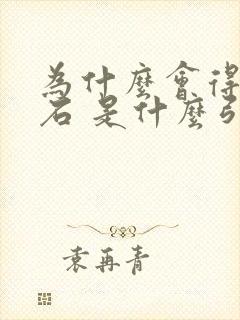 為什麼會得
石 是什麼
袁再青